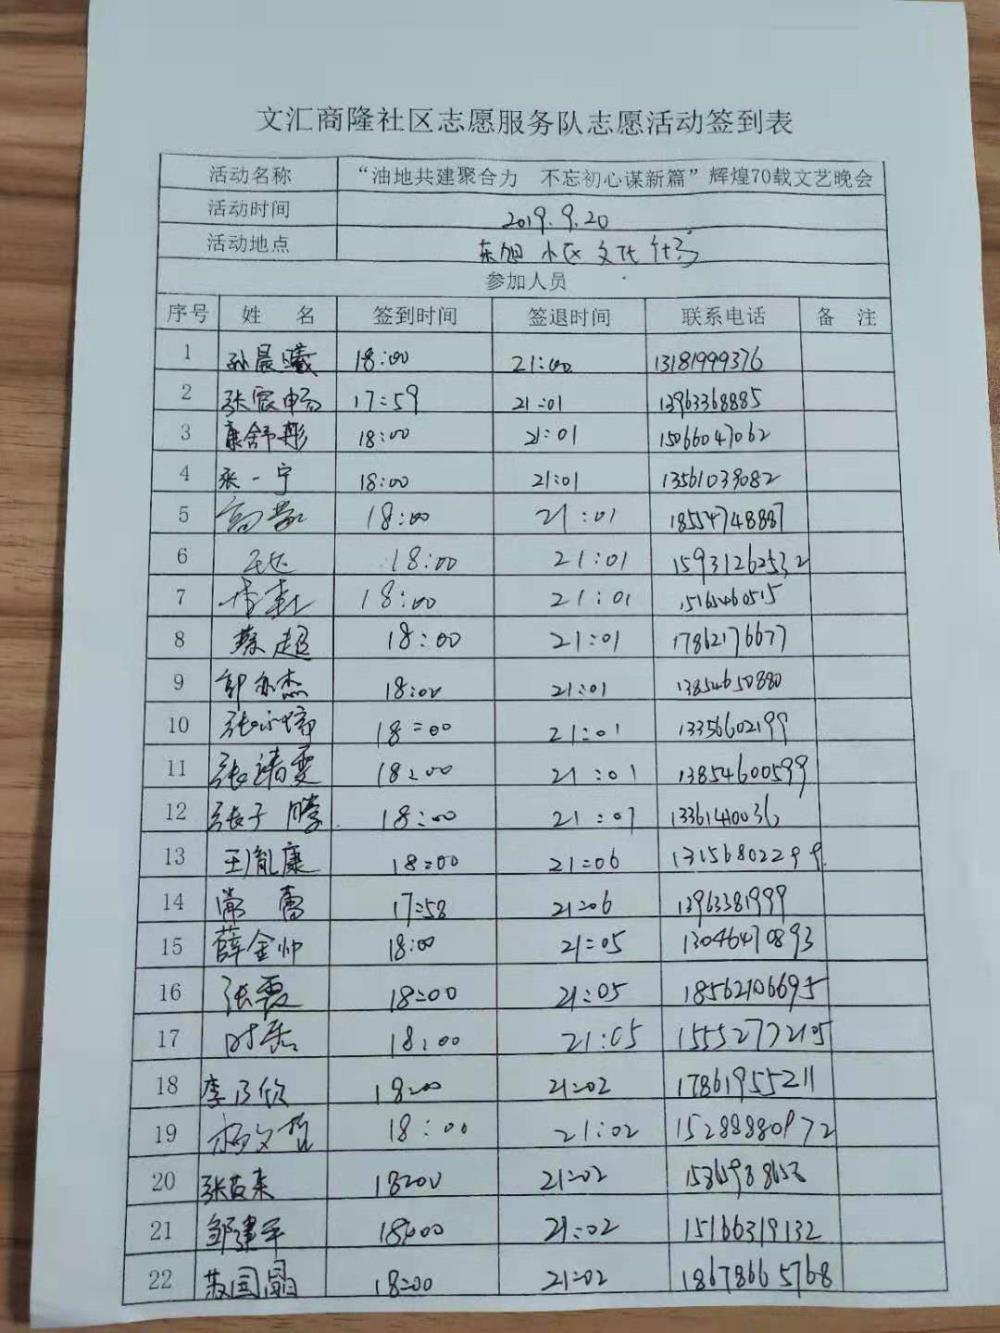 文汇商隆社区志愿服务队志愿活动签到表
活动名称 “油地共建聚合力 不忘初心谋新篇”辉煌70载文艺晚会
活动时间 2019.9.20
活动地点 东旭小区文化
参加人员
序号 姓 名 签到时间 签退时间 联系电话 备 注
1 孙晨曦 18:00 21:00 13181999376
2 张震畅 17:59 21:01 13963368885
3 康舒彤 18:00 21:01 15066047062
4 张一宁 18:00 21:01 13561039082
5 18:00 21:01 18554748887
6 18:00 21:01 15931262532
7 18:00 21:01 15165460515
8 蔡超 18:00 21:01 17862176677
9 郭亦杰 18:00 21:01 13854650880
10 18:00 21:01 13356602199
11 张靖雯 18:00 21:01 13854600599
12 张子腾 18:00 21:07 13361440036
13 王胤康 18:00 21:06 13156802299
14 常蕾 17:58 21:06 13963381999
15 薛金帅 18:00 21:05 13046470893
16 张霞 18:00 21:05 18562106695
17 时磊 18:00 21:05 15552772105
18 李乃欣 18:00 21:02 17861955211
19 杨文哲 18:00 21:02 15288880972
20 18:00 21:02
21 邹建平 18:00 21:02 15166319132
22 18:00 21:02 18678665768